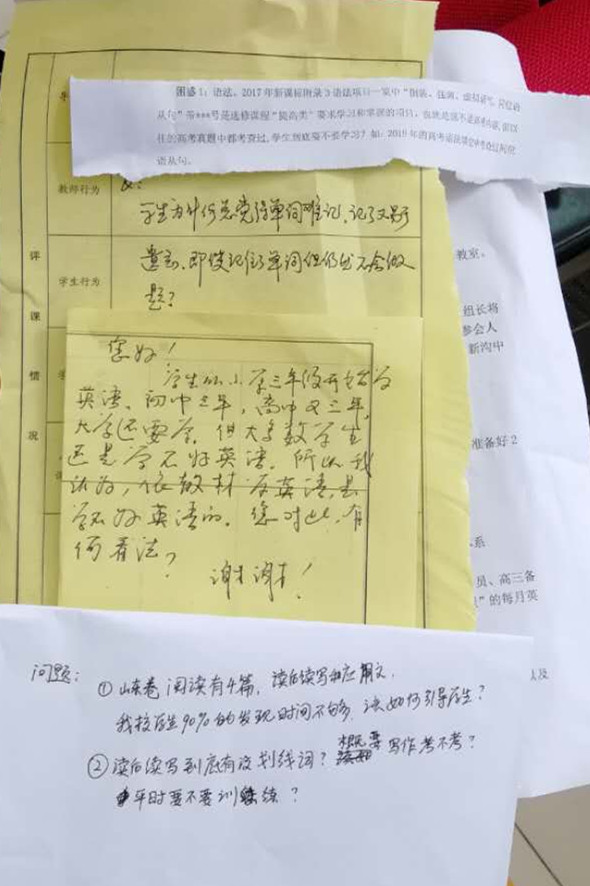 困惑1：语法。2017年新课标附录3语法项目一览中“倒装、强调、虚拟语气、同位语
从句”等***号是选修课程“提高类”要求学习和掌握的项目，
任的高考真题中都考查过,学生到底要不要学习？如：2019年的高考语法填空中考查过同位
语从句。
教师行为
学生为什么总觉得单词难记、记了又易
遗忘、即使记住了单词但仍也不会做
题？
学生行为
评
课
情
况
您好！
学生从小学三年级开始学
英语。初中三年，高中又三年，
大学还要学，但大多数学生
还是学不好英语。所以我
认为，依教材学英语是
学不好英语的。您对此，有
何看法？
谢谢！
教室。
组长将
参会人
新沟中
准备好2
系
员、高三备
”的每月英
以及
问题：
①山东卷 阅读有4篇，读后续写和应用文，
我校学生90%的发现时间不够 该如何引导学生？
②读后续写到底有没划线词？概要写作考不考？
平时要不要训练？